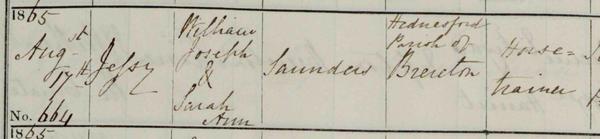 1865
Augst
17th
No. 664
Jessy
William
Joseph
&
Sarah
Ann
Saunders
Hednesford
Parish of
Brereton
Horse=
trainer
1865